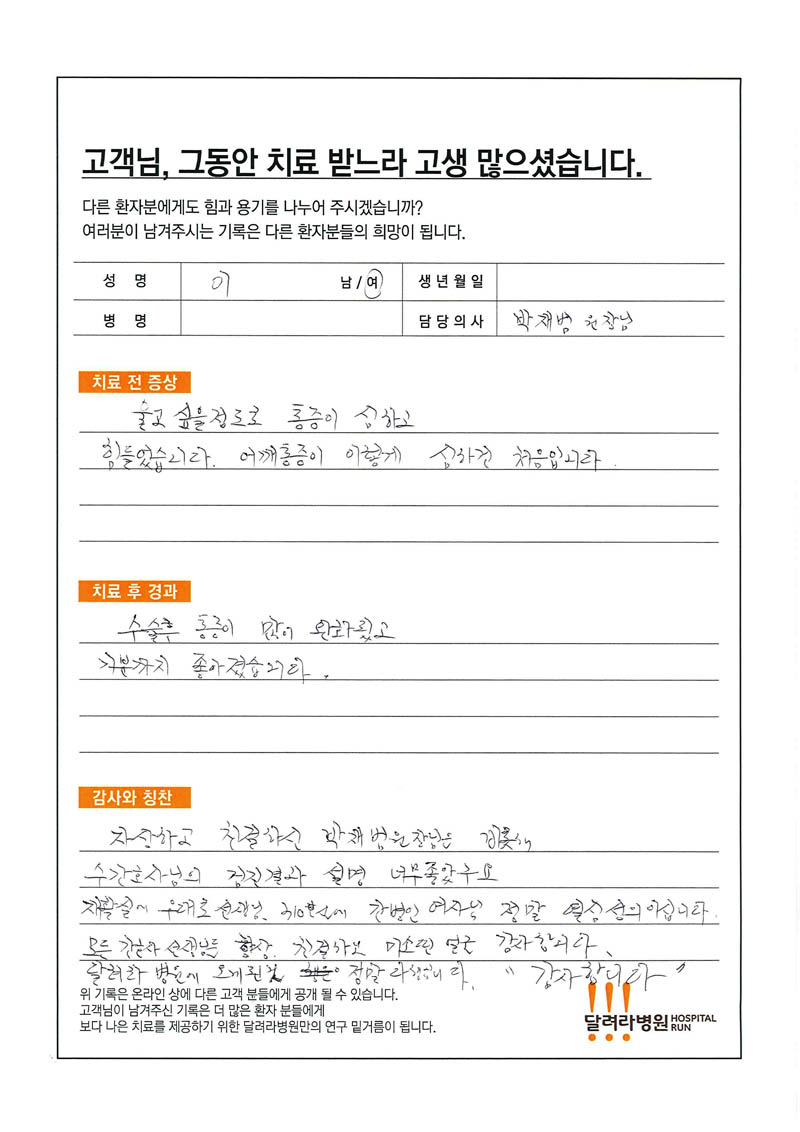 고객님, 그동안 치료 받느라 고생 많으셨습니다.
다른 환자분에게도 힘과 용기를 나누어 주시겠습니까?
여러분이 남겨주시는 기록은 다른 환자분들의 희망이 됩니다.
성 명 이 남/여 생년월일
병 명 담당의사 박재범 원장님
치료 전 증상
울고 싶을정도로 통증이 심하고
힘들었습니다. 어깨통증이 이렇게 심하건 처음입니다.
치료 후 경과
수술후 통증이 많이 완화됐고
기분까지 좋아졌습니다.
감사와 칭찬
자상하고 친절하신 박재범원장님은 비롯해
수간호사님의 검진결과 설명 너무좋았구요
재활실에 우태호선생님, 310호실에 간병인 여사님 정말 열심
모든 간호사 선생님들 항상 친절하고 미소띤 얼굴 감사합니다.
달려라 병원에 오게된것 정말 다행입니다. "감사합니다"
위 기록은 온라인 상에 다른 고객 분들에게 공개 될 수 있습니다.
고객님이 남겨주신 기록은 더 많은 환자 분들에게
보다 나은 치료를 제공하기 위한 달려라병원만의 연구 밑거름이 됩니다.
달려라병원 HOSPITAL RUN